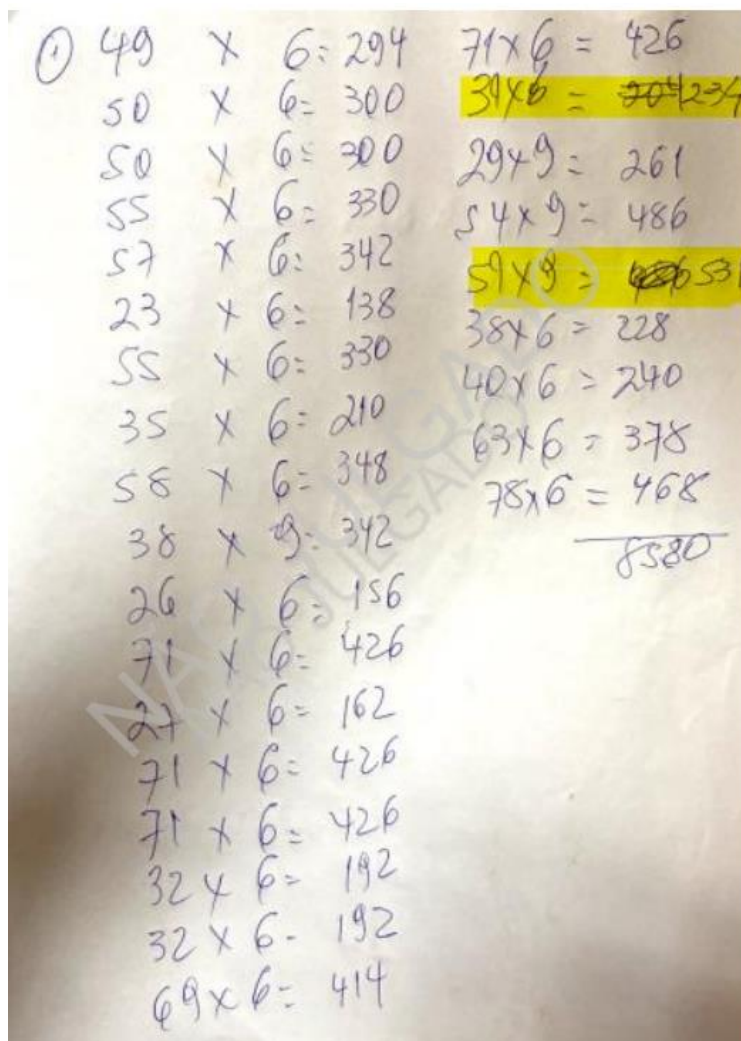 ① 49 x 6= 294
50 x 6= 300
50 x 6= 300
55 x 6= 330
57 x 6= 342
23 x 6= 138
55 x 6= 330
35 x 6= 210
58 x 6= 348
38 x 9= 342
26 x 6= 156
71 x 6= 426
27 x 6= 162
71 x 6= 426
71 x 6= 426
32 x 6= 192
32 x 6- 192
69 x 6= 414
71x6 = 426
39x6 = 234
29x9= 261
54x9= 486
59x9= 531
38x6 = 228
40x6 = 240
63x6 = 378
78x6 = 468
8580